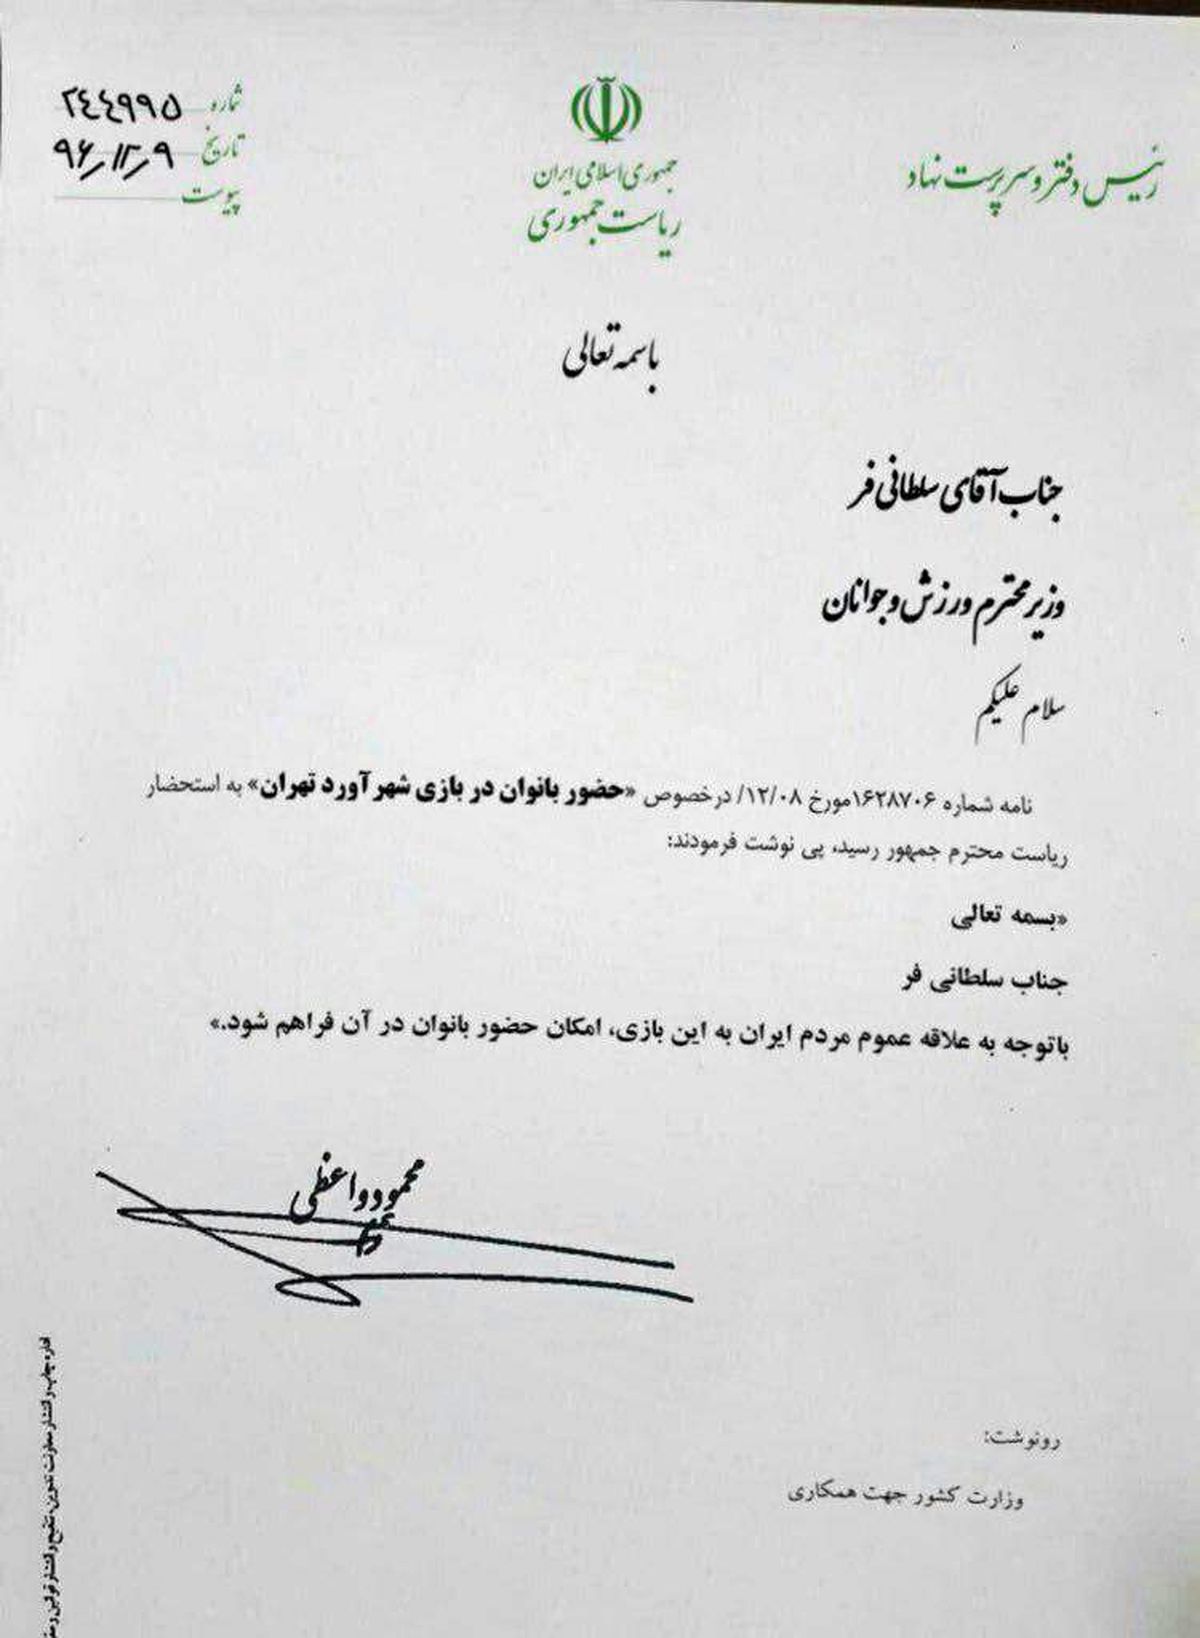 رئیس دفتر و سرپرست نهاد
جمهوری اسلامی ایران
ریاست جمهوری
شماره ۲۴۴۹۹۵
تاریخ ۹۶/۱۲/۹
پیوست
باسمه تعالی
جناب آقای سلطانی فر
وزیر محترم ورزش و جوانان
سلام علیکم
نامه شماره ۱۶۲۸۷۰۶مورخ ۱۲/۰۸/ درخصوص «حضور بانوان در بازی شهر آورد تهران» به استحضار
ریاست محترم جمهور رسید، پی نوشت فرمودند:
«بسمه تعالی
جناب سلطانی فر
باتوجه به علاقه عموم مردم ایران به این بازی، امکان حضور بانوان در آن فراهم شود.»
محمود واعظی
رونوشت:
وزارت کشور جهت همکاری
اداره چاپ و انتشار معاونت تدوین، تنقیح و انتشار قوانین و مقر